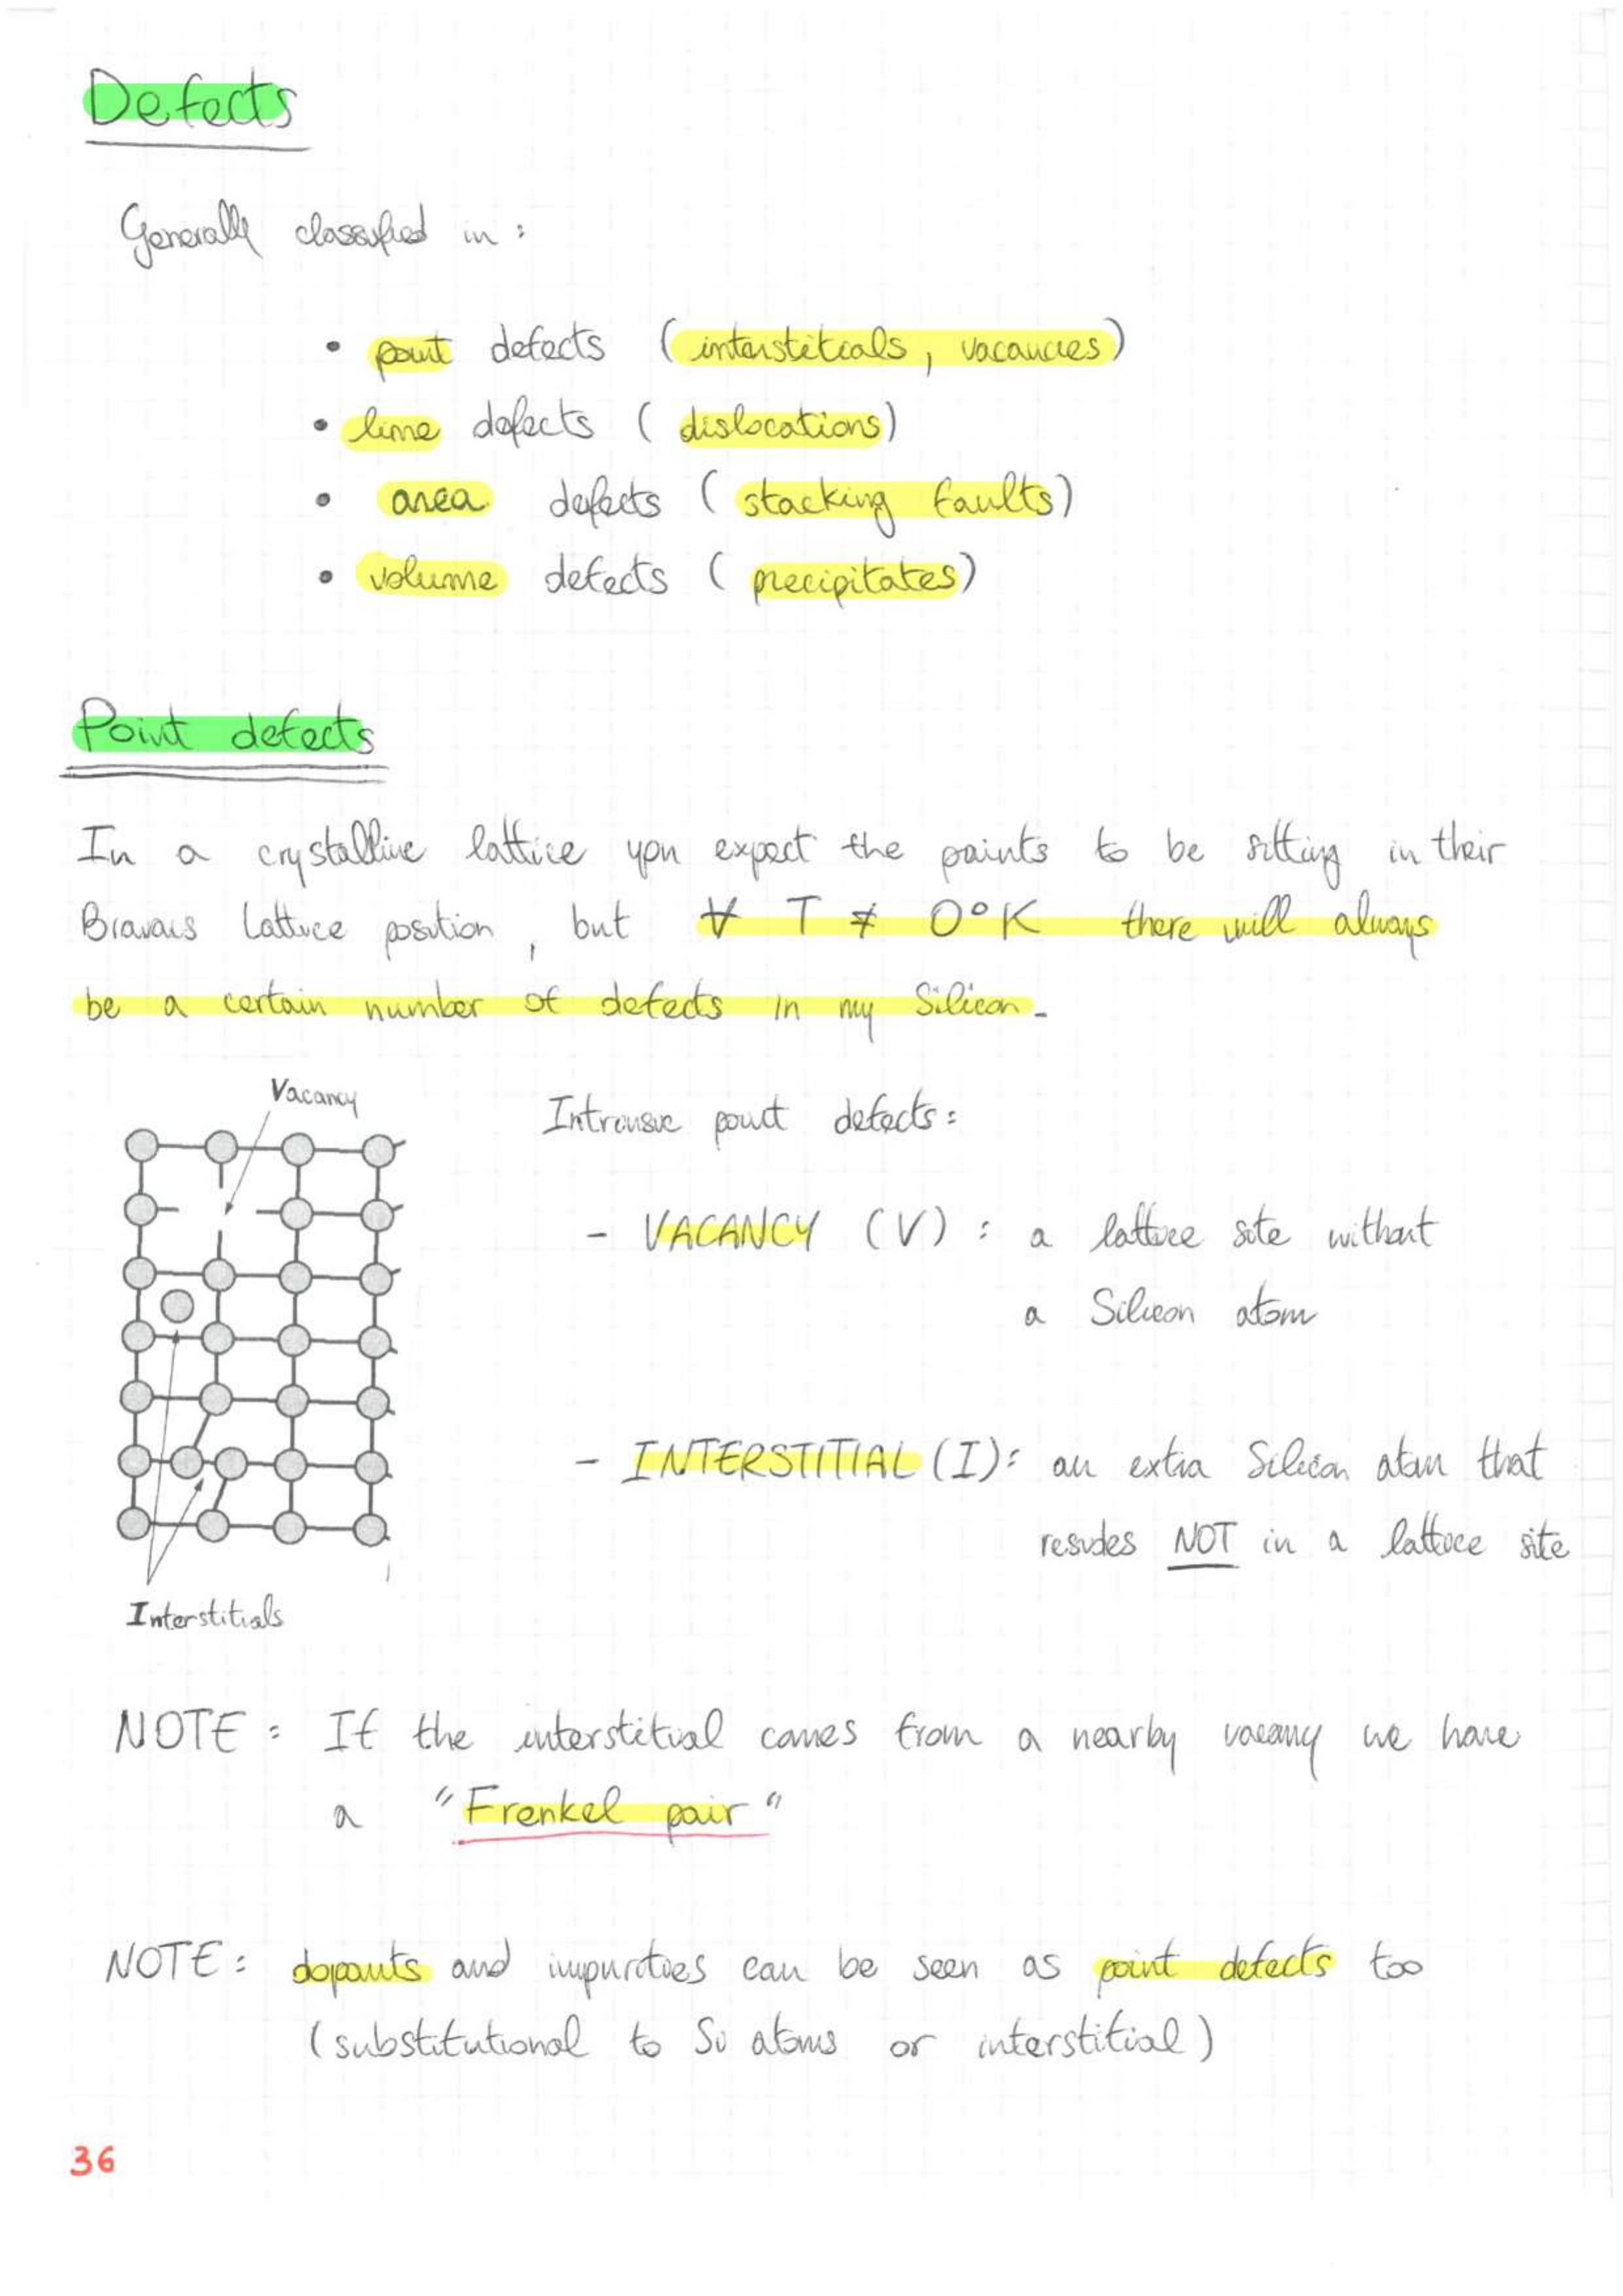 Defects
Generally classified in :
• point defects (interstitials, vacancies)
• line defects (dislocations)
• area defects (stacking faults)
• volume defects (precipitates)
Point defects
In a crystalline lattice you expect the points to be sitting in their
Bravais Lattice position, but ∀ T ≠ 0°K there will always
be a certain number of defects in my Silicon.
Vacancy
Intrinsic point defects:
- VACANCY (V) : a lattice site without
a Silicon atom
- INTERSTITIAL (I): an extra Silicon atom that
resides NOT in a lattice site
Interstitials
NOTE: If the interstitial comes from a nearby vacancy we have
a "Frenkel pair"
NOTE: dopants and impurities can be seen as point defects too
(substitutional to Si atoms or interstitial)
36